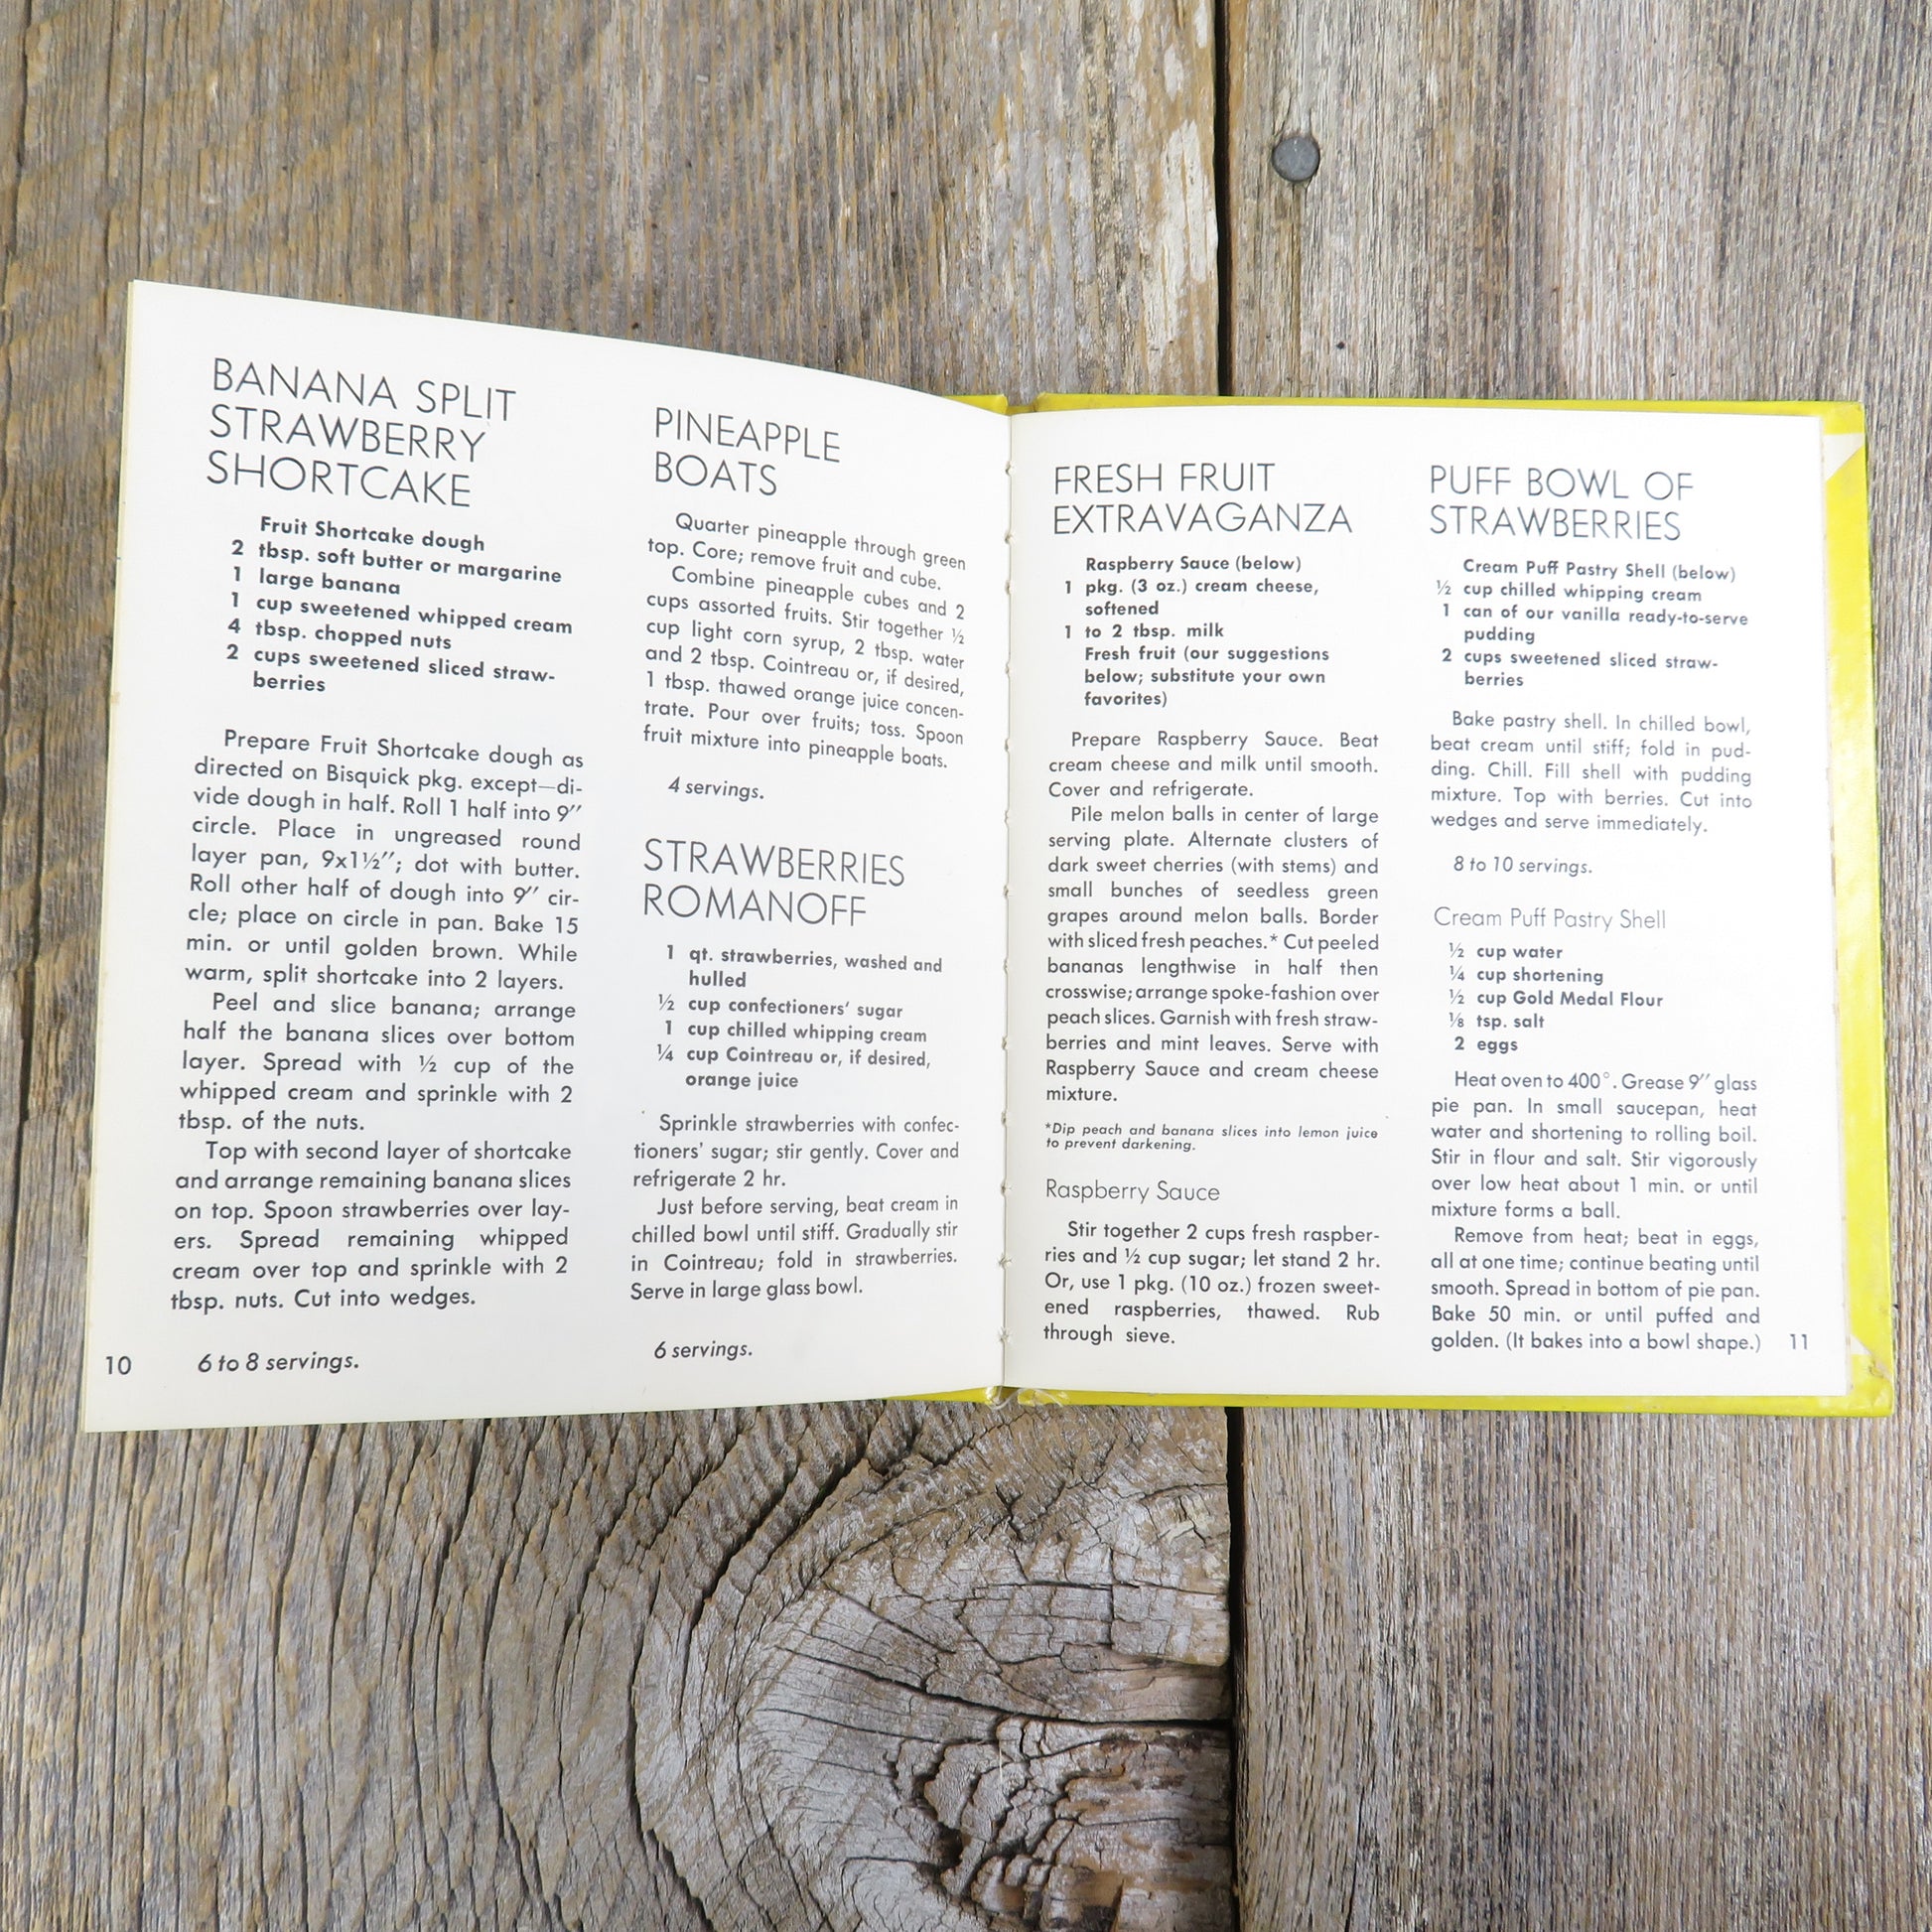 BANANA SPLIT
STRAWBERRY
SHORTCAKE
Fruit Shortcake dough
2 tbsp. soft butter or margarine
1 large banana
1 cup sweetened whipped cream
4 tbsp. chopped nuts
2 cups sweetened sliced straw-
berries
Prepare Fruit Shortcake dough as
directed on Bisquick pkg. except—di-
vide dough in half. Roll 1 half into 9″
circle. Place in ungreased round
layer pan, 9x1½″; dot with butter.
Roll other half of dough into 9″ cir-
cle; place on circle in pan. Bake 15
min. or until golden brown. While
warm, split shortcake into 2 layers.
Peel and slice banana; arrange
half the banana slices over bottom
layer. Spread with ½ cup of the
whipped cream and sprinkle with 2
tbsp. of the nuts.
Top with second layer of shortcake
and arrange remaining banana slices
on top. Spoon strawberries over lay-
ers. Spread remaining whipped
cream over top and sprinkle with 2
tbsp. nuts. Cut into wedges.
6 to 8 servings.
10
PINEAPPLE
BOATS
Quarter pineapple through green
top. Core; remove fruit and cube.
Combine pineapple cubes and 2
cups assorted fruits. Stir together ½
cup light corn syrup, 2 tbsp. water
and 2 tbsp. Cointreau or, if desired,
1 tbsp. thawed orange juice concen-
trate. Pour over fruits; toss. Spoon
fruit mixture into pineapple boats.
4 servings.
STRAWBERRIES
ROMANOFF
1 qt. strawberries, washed and
hulled
½ cup confectioners' sugar
1 cup chilled whipping cream
¼ cup Cointreau or, if desired,
orange juice
Sprinkle strawberries with confec-
tioners' sugar; stir gently. Cover and
refrigerate 2 hr.
Just before serving, beat cream in
chilled bowl until stiff. Gradually stir
in Cointreau; fold in strawberries.
Serve in large glass bowl.
6 servings.
FRESH FRUIT
EXTRAVAGANZA
Raspberry Sauce (below)
1 pkg. (3 oz.) cream cheese,
softened
1 to 2 tbsp. milk
Fresh fruit (our suggestions
below; substitute your own
favorites)
Prepare Raspberry Sauce. Beat
cream cheese and milk until smooth.
Cover and refrigerate.
Pile melon balls in center of large
serving plate. Alternate clusters of
dark sweet cherries (with stems) and
small bunches of seedless green
grapes around melon balls. Border
with sliced fresh peaches.* Cut peeled
bananas lengthwise in half then
crosswise; arrange spoke-fashion over
peach slices. Garnish with fresh straw-
berries and mint leaves. Serve with
Raspberry Sauce and cream cheese
mixture.
*Dip peach and banana slices into lemon juice
to prevent darkening.
Raspberry Sauce
Stir together 2 cups fresh raspber-
ries and ½ cup sugar; let stand 2 hr.
Or, use 1 pkg. (10 oz.) frozen sweet-
ened raspberries, thawed. Rub
through sieve.
PUFF BOWL OF
STRAWBERRIES
Cream Puff Pastry Shell (below)
½ cup chilled whipping cream
1 can of our vanilla ready-to-serve
pudding
2 cups sweetened sliced straw-
berries
Bake pastry shell. In chilled bowl,
beat cream until stiff; fold in pud-
ding. Chill. Fill shell with pudding
mixture. Top with berries. Cut into
wedges and serve immediately.
8 to 10 servings.
Cream Puff Pastry Shell
½ cup water
¼ cup shortening
½ cup Gold Medal Flour
⅛ tsp. salt
2 eggs
Heat oven to 400°. Grease 9″ glass
pie pan. In small saucepan, heat
water and shortening to rolling boil.
Stir in flour and salt. Stir vigorously
over low heat about 1 min. or until
mixture forms a ball.
Remove from heat; beat in eggs,
all at one time; continue beating until
smooth. Spread in bottom of pie pan.
Bake 50 min. or until puffed and
golden. (It bakes into a bowl shape.)
11